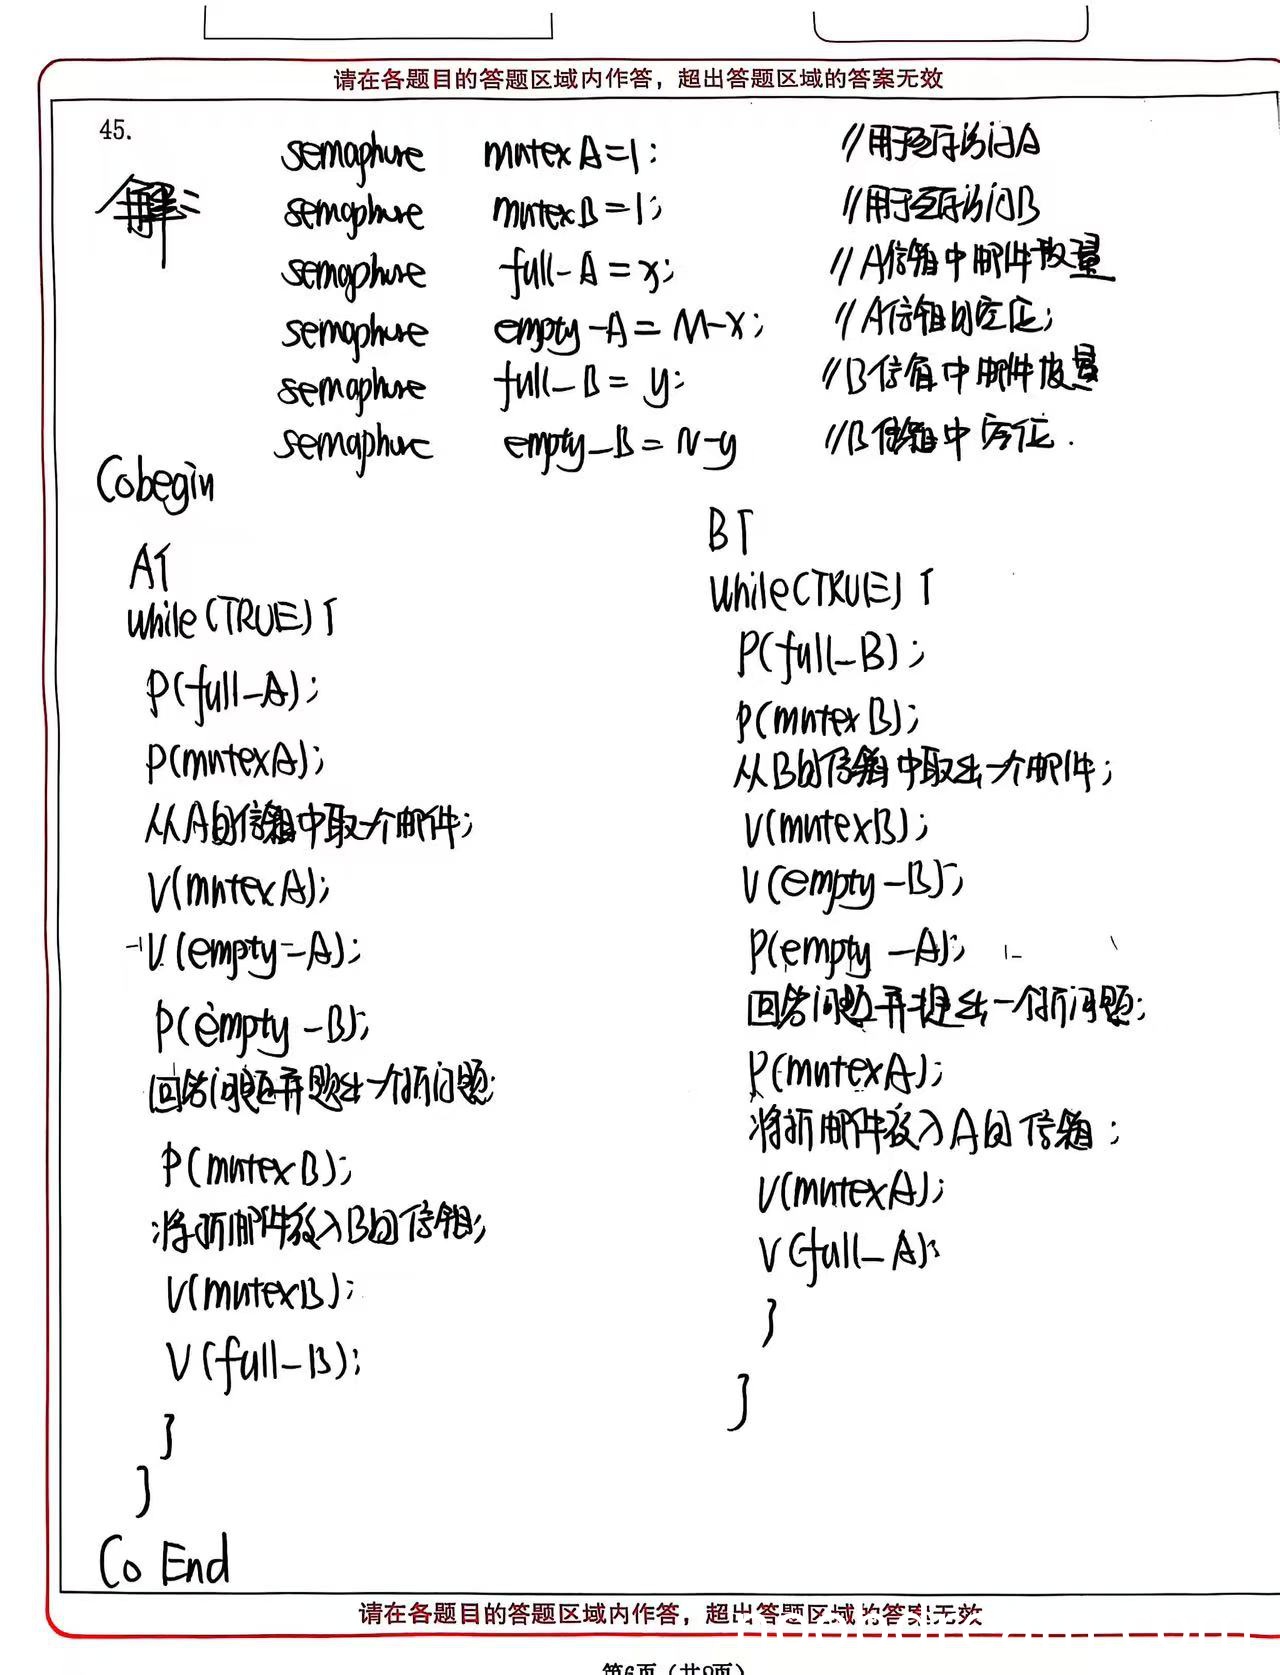 请在各题目的答题区域内作答，超出答题区域的答案无效
45.
解：
semaphore mutexA=1; //用于互斥访问A
semaphore mutexB=1; //用于互斥访问B
semaphore full-A=x; //A信箱中邮件数量
semaphore empty-A=M-x; //A信箱的空位;
semaphore full-B=y; //B信箱中邮件数量
semaphore empty-B=N-y //B信箱中空位.
Cobegin
A{
while(TRUE){
P(full-A);
P(mutexA);
从A的信箱中取一个邮件;
V(mutexA);
V(empty-A);
P(empty-B);
回答问题并题出一个新问题;
P(mutexB);
将新邮件放入B的信箱;
V(mutexB);
V(full-B);
}
}
B{
while(TRUE){
P(full-B);
P(mutexB);
从B的信箱中取出一个邮件;
V(mutexB);
V(empty-B);
P(empty-A);
回答问题并提出一个新问题;
P(mutexA);
将新邮件放入A的信箱;
V(mutexA);
V(full-A);
}
}
Co End
请在各题目的答题区域内作答，超出答题区域的答案无效
第6页（共9页）